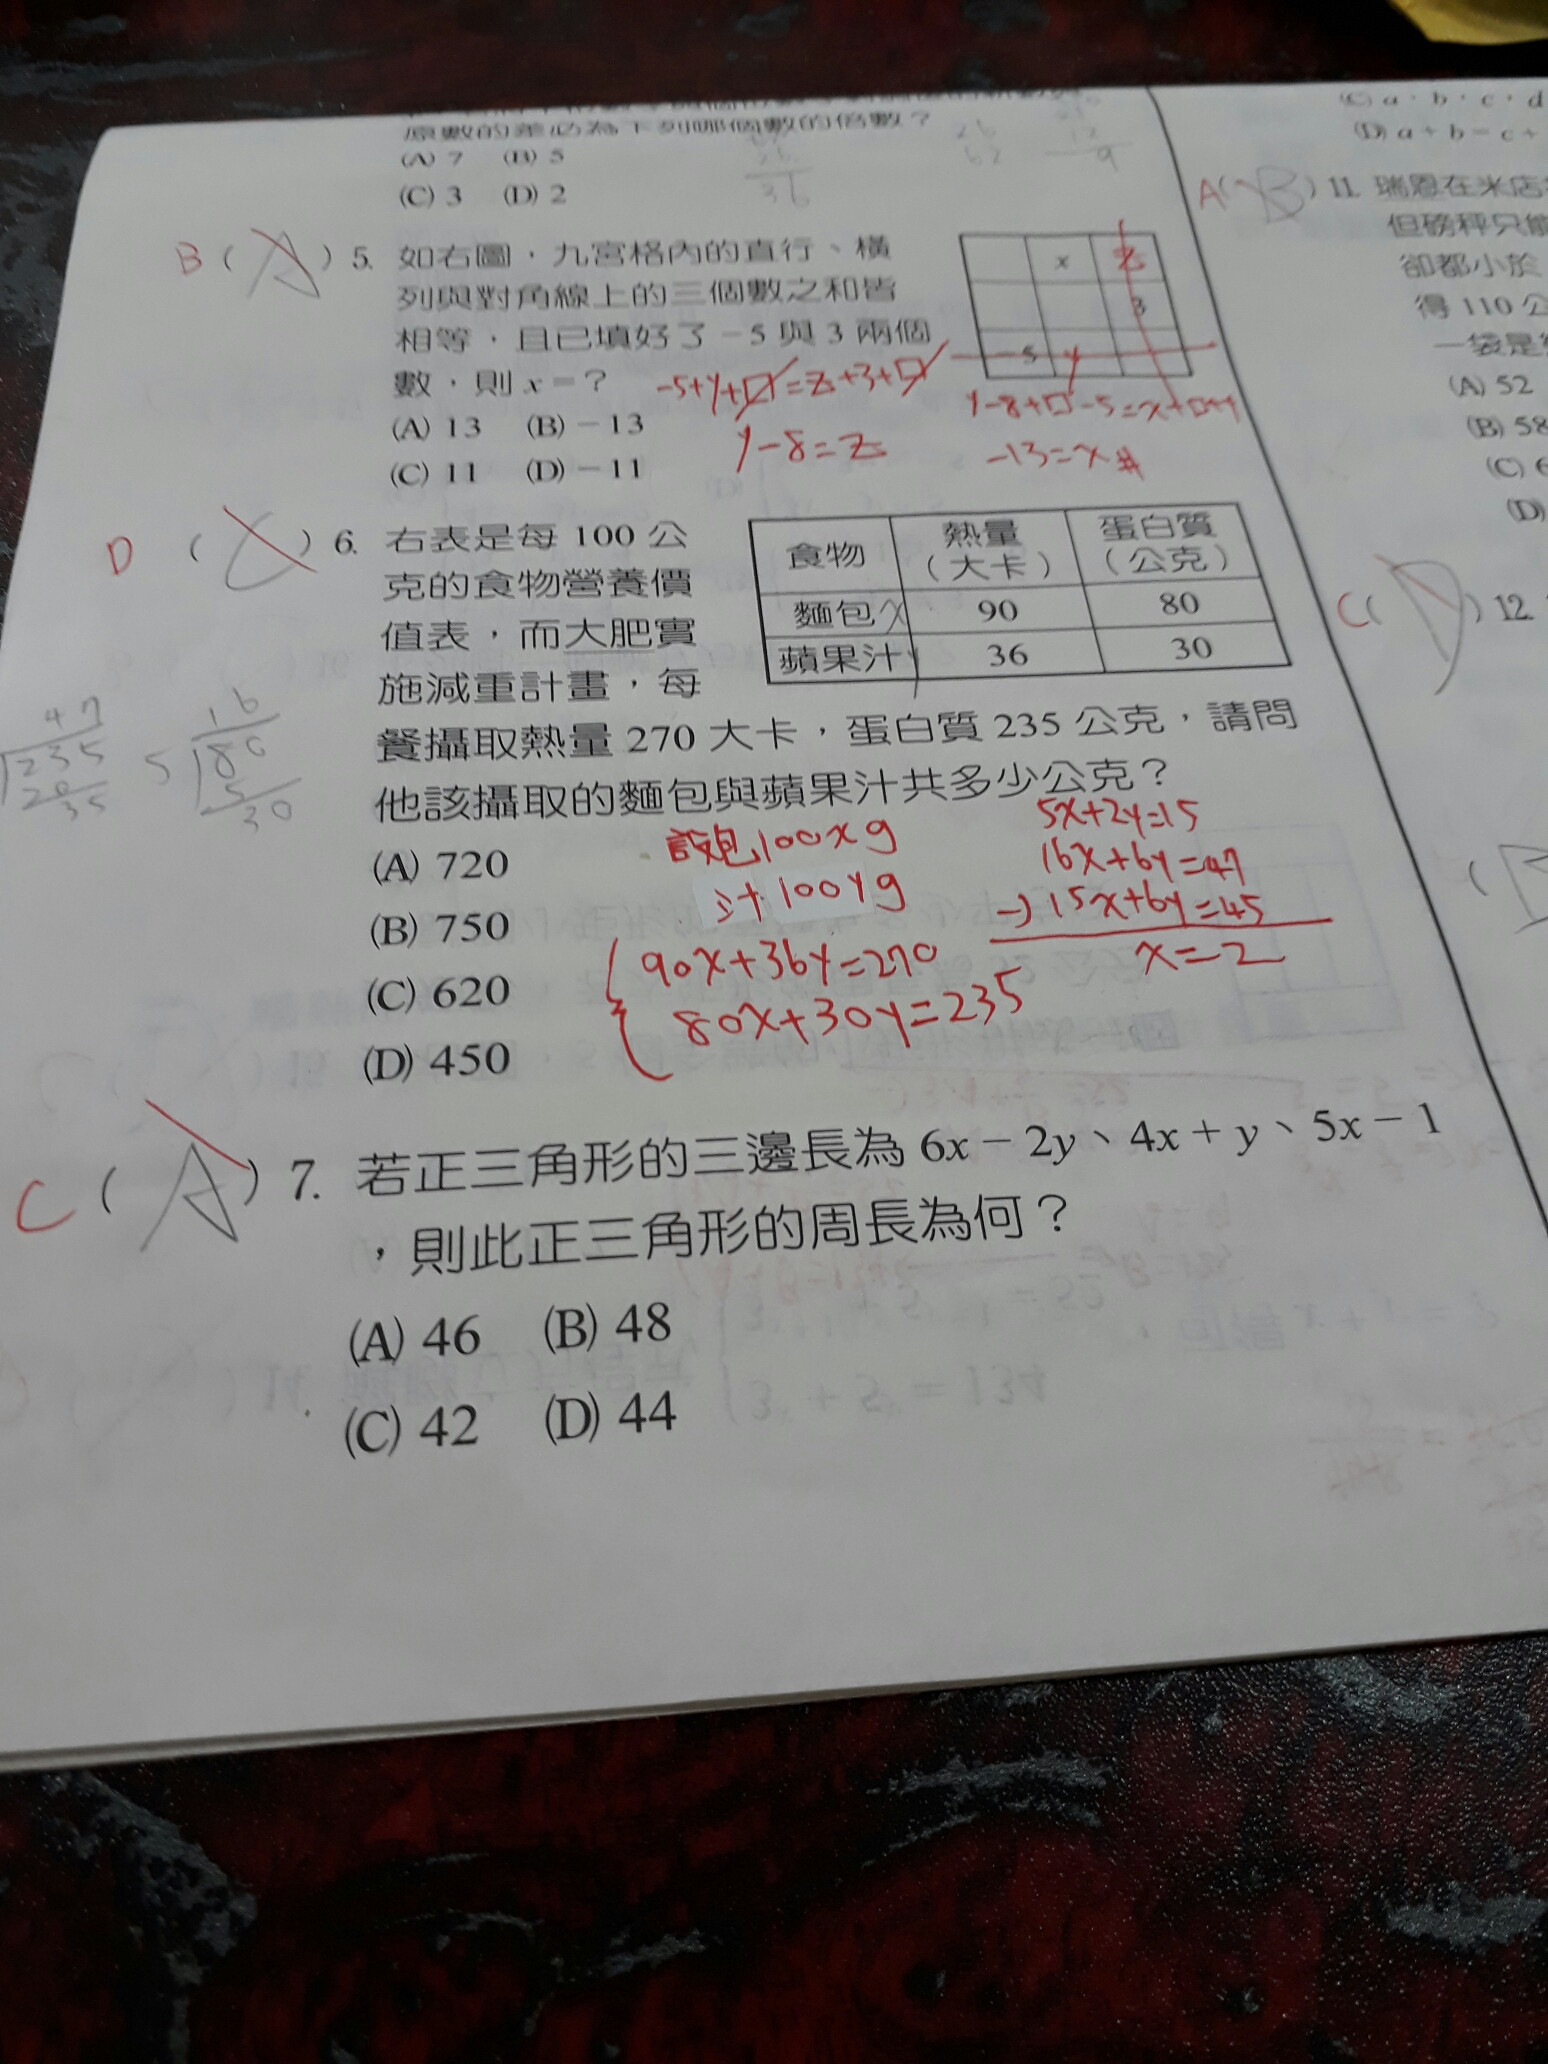 原數的差必為下列哪個數的倍數？
(A) 7 (B) 5
(C) 3 (D) 2
B ( A ) 5. 如右圖，九宮格內的直行、橫
列與對角線上的三個數之和皆
相等，且已填好了 －5 與 3 兩個
數，則 x＝？
(A) 13 (B) －13
(C) 11 (D) －11
x z
3
-5 y
-5+y+□=z+3+□
y-8=z
y-8+□-5=x+□+y
-13=x #
D ( C ) 6. 右表是每 100 公
克的食物營養價
值表，而大肥實
施減重計畫，每
餐攝取熱量 270 大卡，蛋白質 235 公克，請問
他該攝取的麵包與蘋果汁共多少公克？
食物 熱量（大卡） 蛋白質（公克）
麵包 x 90 80
蘋果汁 y 36 30
(A) 720
(B) 750
(C) 620
(D) 450
設包100x g
汁100y g
90x+36y=270
80x+30y=235
5x+2y=15
16x+6y=47
-) 15x+6y=45
x=2
47
235
20
35
16
5 80
5
30
C ( A ) 7. 若正三角形的三邊長為 6x－2y、4x＋y、5x－1
，則此正三角形的周長為何？
(A) 46 (B) 48
(C) 42 (D) 44
(C) a．b．c．d
(D) a＋b－c＋
A( B ) 11. 瑞恩在米店
但磅秤只能
卻都小於
得 110 公
一袋是
(A) 52
(B) 58
(C) 6
(D)
C( D ) 12.